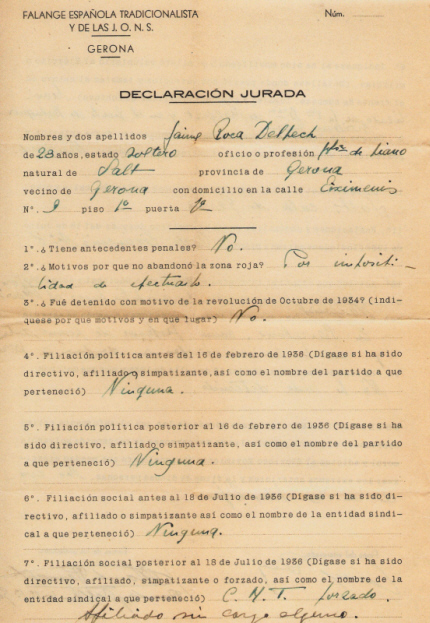 FALANGE ESPAÑOLA TRADICIONALISTA
Y DE LAS J. O. N. S.
GERONA
Núm.
DECLARACIÓN JURADA
Nombres y dos apellidos Jaime Roca Delpech
de 23 años, estado soltero oficio o profesión de piano
natural de Salt provincia de Gerona
vecino de Gerona con domicilio en la calle Eiximenis
Nº. 9 piso 1º puerta 1ª
1º. ¿Tiene antecedentes penales? No.
2º. ¿Motivos por que no abandonó la zona roja? Por imposibi-
lidad de efectuarlo.
3º. ¿Fué detenido con motivo de la revolución de Octubre de 1934? (indí-
quese por que motivos y en que lugar) No.
4º. Filiación política antes del 16 de febrero de 1936 (Dígase si ha sido
directivo, afiliado o simpatizante, así como el nombre del partido a que
perteneció) Ninguna.
5º. Filiación política posterior al 16 de febrero de 1936 (Dígase si ha
sido directivo, afiliado o simpatizante, así como el nombre del partido
a que perteneció) Ninguna.
6º. Filiación social antes al 18 de Julio de 1936 (Dígase si ha sido di-
rectivo, afiliado o simpatizante así como el nombre de la entidad sindi-
cal a que perteneció) Ninguna.
7º. Filiación social posterior al 18 de Julio de 1936 (Dígase si ha sido
directivo, afiliado, simpatizante o forzado, así como el nombre de la
entidad sindical a que perteneció) C. N. T. forzado.
Afiliado sin cargo alguno.